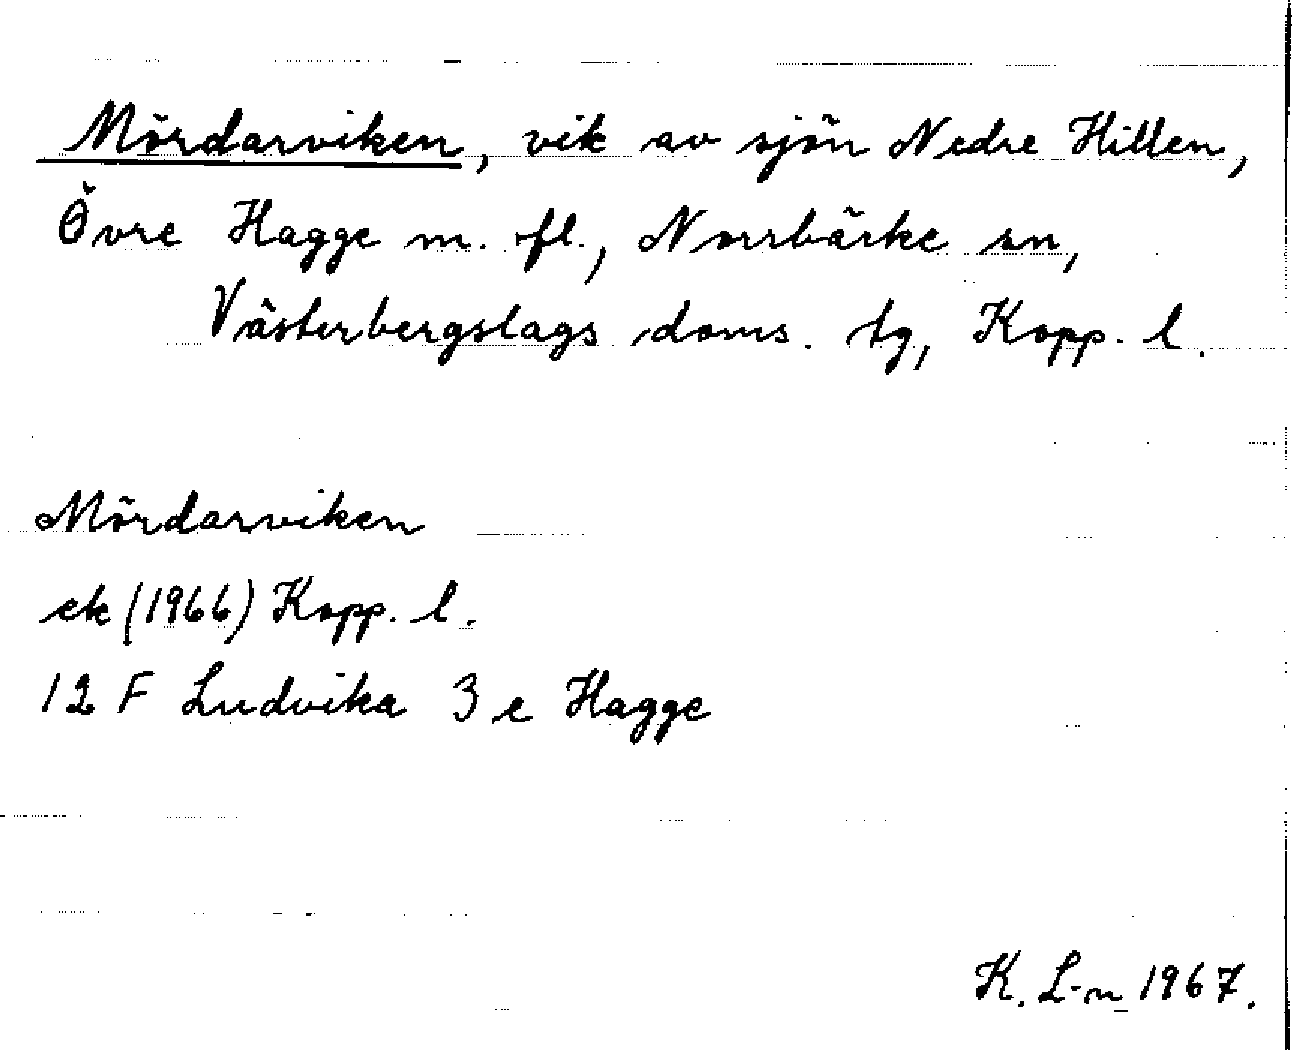 Mördarviken, vik av sjön Nedre Hillen,
Övre Hagge m. fl., Norrbärke sn,
Västerbergslags doms. tg, Kopp. l.
Mördarviken
ek (1966) Kopp. l.
12 F Ludvika 3 e Hagge
K. L-n 1967.